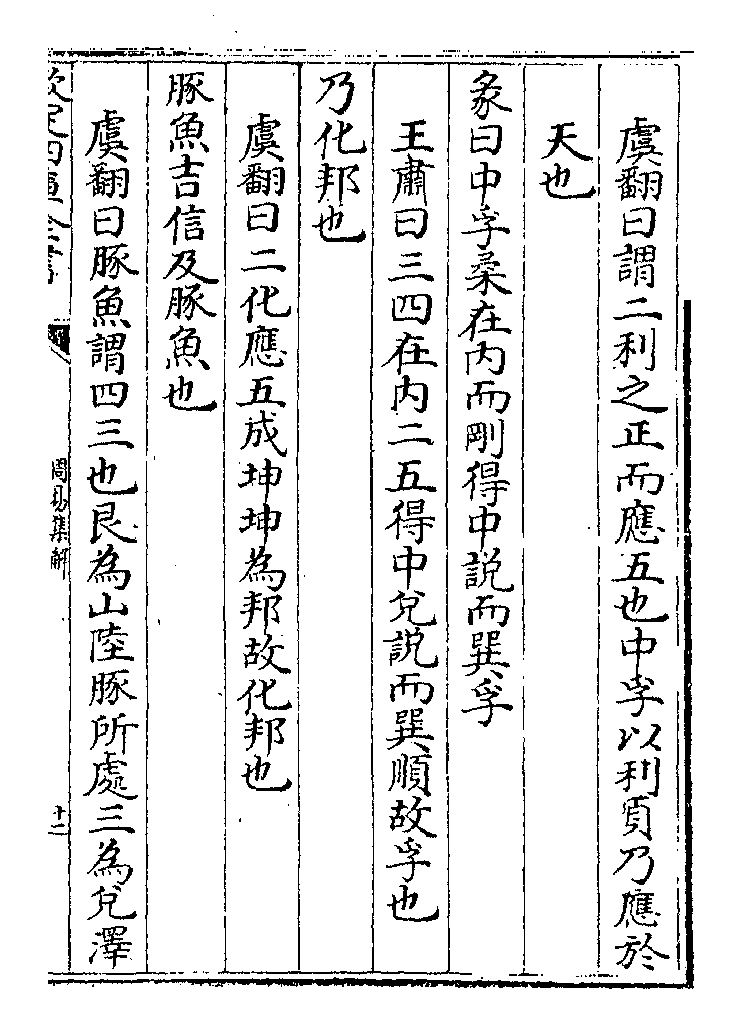 虞翻曰謂二利之正而應五也中孚以利貞乃應於
天也
彖曰中孚柔在内而剛得中説而巽孚
王肅曰三四在内二五得中兊説而巽順故孚也
乃化邦也
虞翻曰二化應五成坤坤為邦故化邦也
豚魚吉信及豚魚也
虞翻曰豚魚謂四三也艮為山陸豚所處三為兊澤
欽定四庫全書
周易集解
十二